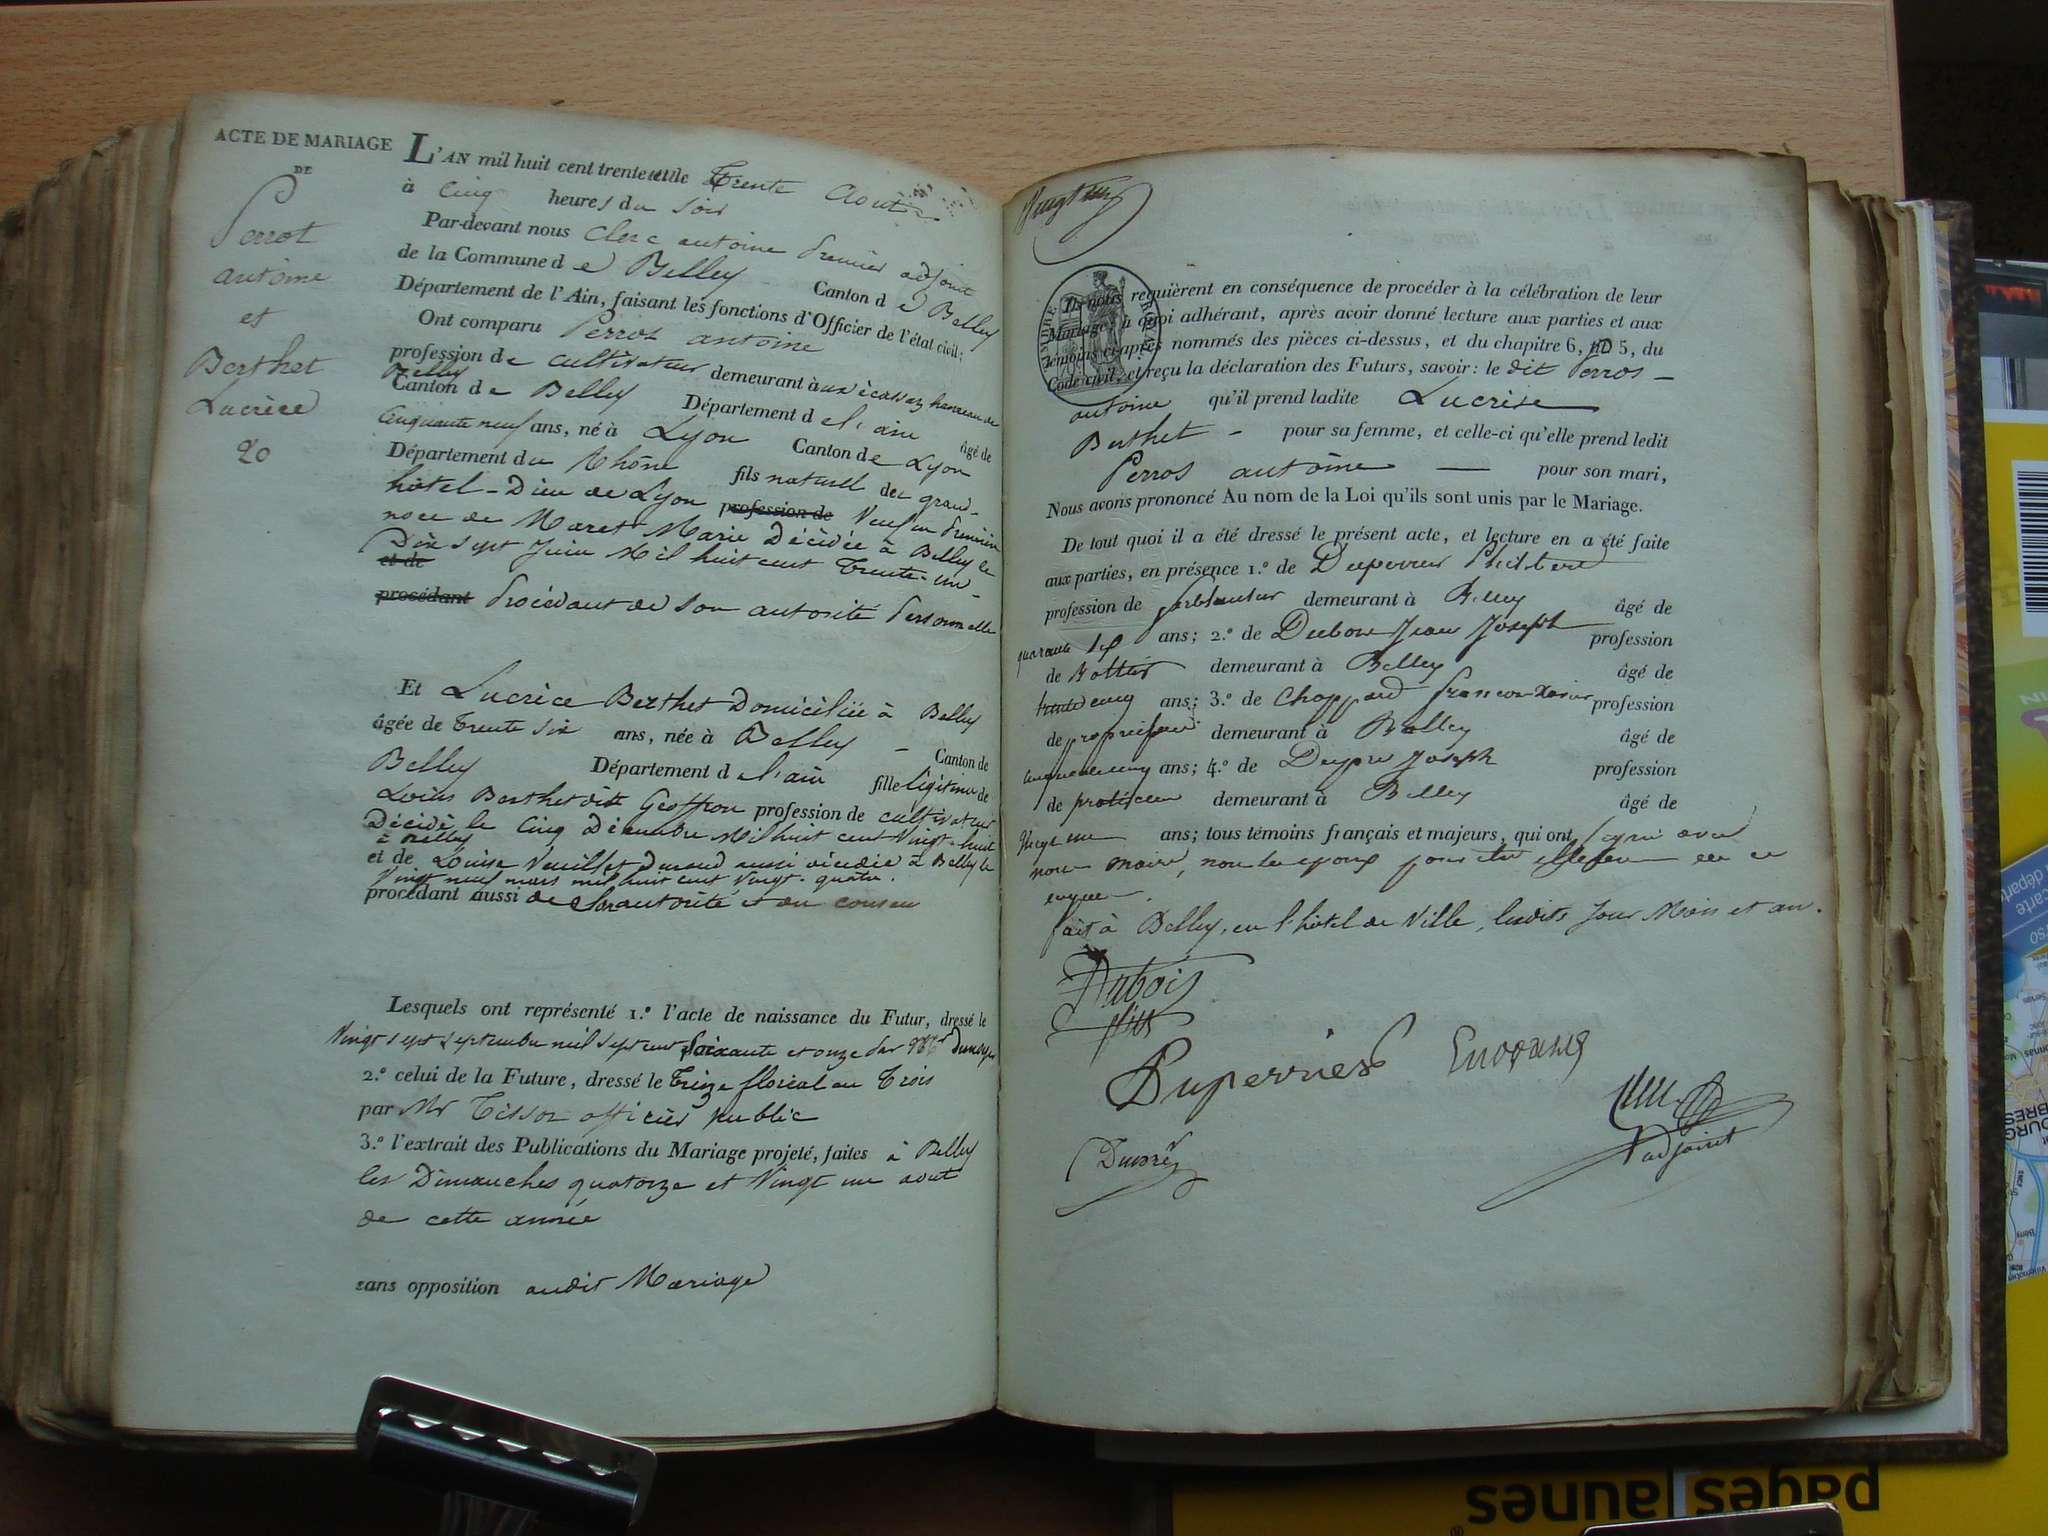 ACTE DE MARIAGE
DE
Perrot
antoine
et
Berthet
Lucrèce
20
L'AN mil huit cent trente et un le Trente Aout
à Cinq heures du soir
Par-devant nous Clerc antoine Premier adjoint
de la Commune de Belley Canton de Belley
Département de l'Ain, faisant les fonctions d'Officier de l'état civil:
Ont comparu Perrot antoine
profession de cultivateur demeurant aux écassaz hameau de
Belley
Canton de Belley Département de l'ain âgé de
Cinquante neuf ans, né à Lyon Canton de Lyon
Département du Rhône fils naturel du grand
hôtel-Dieu de Lyon profession de Veuf en Première
noce de Maret Marie Décédée à Belley le
Dix sept Juin Mil huit cent Trente-un
et de
procédant Procédant de son autorité Personnelle
Et Lucrèce Berthet Domiciliée à Belley
âgée de Trente six ans, née à Belley Canton de
Belley Département de l'ain fille légitime de
Louis Berthet dit Geoffron profession de cultivateur
Décédé le Cinq Décembre Mil huit cent Vingt-huit
à Belley
et de Louise Veuillet Durand aussi décédée à Belley le
Vingt neuf mars mil huit cent Vingt-quatre.
procédant aussi de son autorité et du consen
Lesquels ont représenté 1.° l'acte de naissance du Futur, dressé le
Vingt sept septembre mil sept cent soixante et onze par
2.° celui de la Future, dressé le Treize floréal an Trois
par Mr Tissot officier public
3.° l'extrait des Publications du Mariage projeté, faites à Belley
les Dimanches quatorze et Vingt un aout
de cette année
sans opposition audit Mariage
TIMBRE ROYAL
Ils nous requièrent en conséquence de procéder à la célébration de leur
Mariage; à quoi adhérant, après avoir donné lecture aux parties et aux
témoins ci-après nommés des pièces ci-dessus, et du chapitre 6, no 5, du
Code civil, et reçu la déclaration des Futurs, savoir: le dit Perrot
antoine qu'il prend ladite Lucrèse
Berthet pour sa femme, et celle-ci qu'elle prend ledit
Perrot antoine pour son mari,
Nous avons prononcé Au nom de la Loi qu'ils sont unis par le Mariage.
De tout quoi il a été dressé le présent acte, et lecture en a été faite
aux parties, en présence 1.° de Duperrier Philibert
profession de ferblantier demeurant à Belley âgé de
quarante ans; 2.° de Dubois Jean Joseph profession
de demeurant à Belley âgé de
trente cinq ans; 3.° de Choppard francois Xavier profession
de propriétaire demeurant à Belley âgé de
ans; 4.° de Dupré Joseph profession
de praticien demeurant à Belley âgé de
Vingt un ans; tous témoins français et majeurs, qui ont signé avec
nous maire, non les époux pour être illettrés de ce
enquis.
fait à Belley, en l'hôtel de Ville, lesdits Jour Mois et an.
Dubois
fils
Duperrier
Dupré
adjoint
pages jaunes